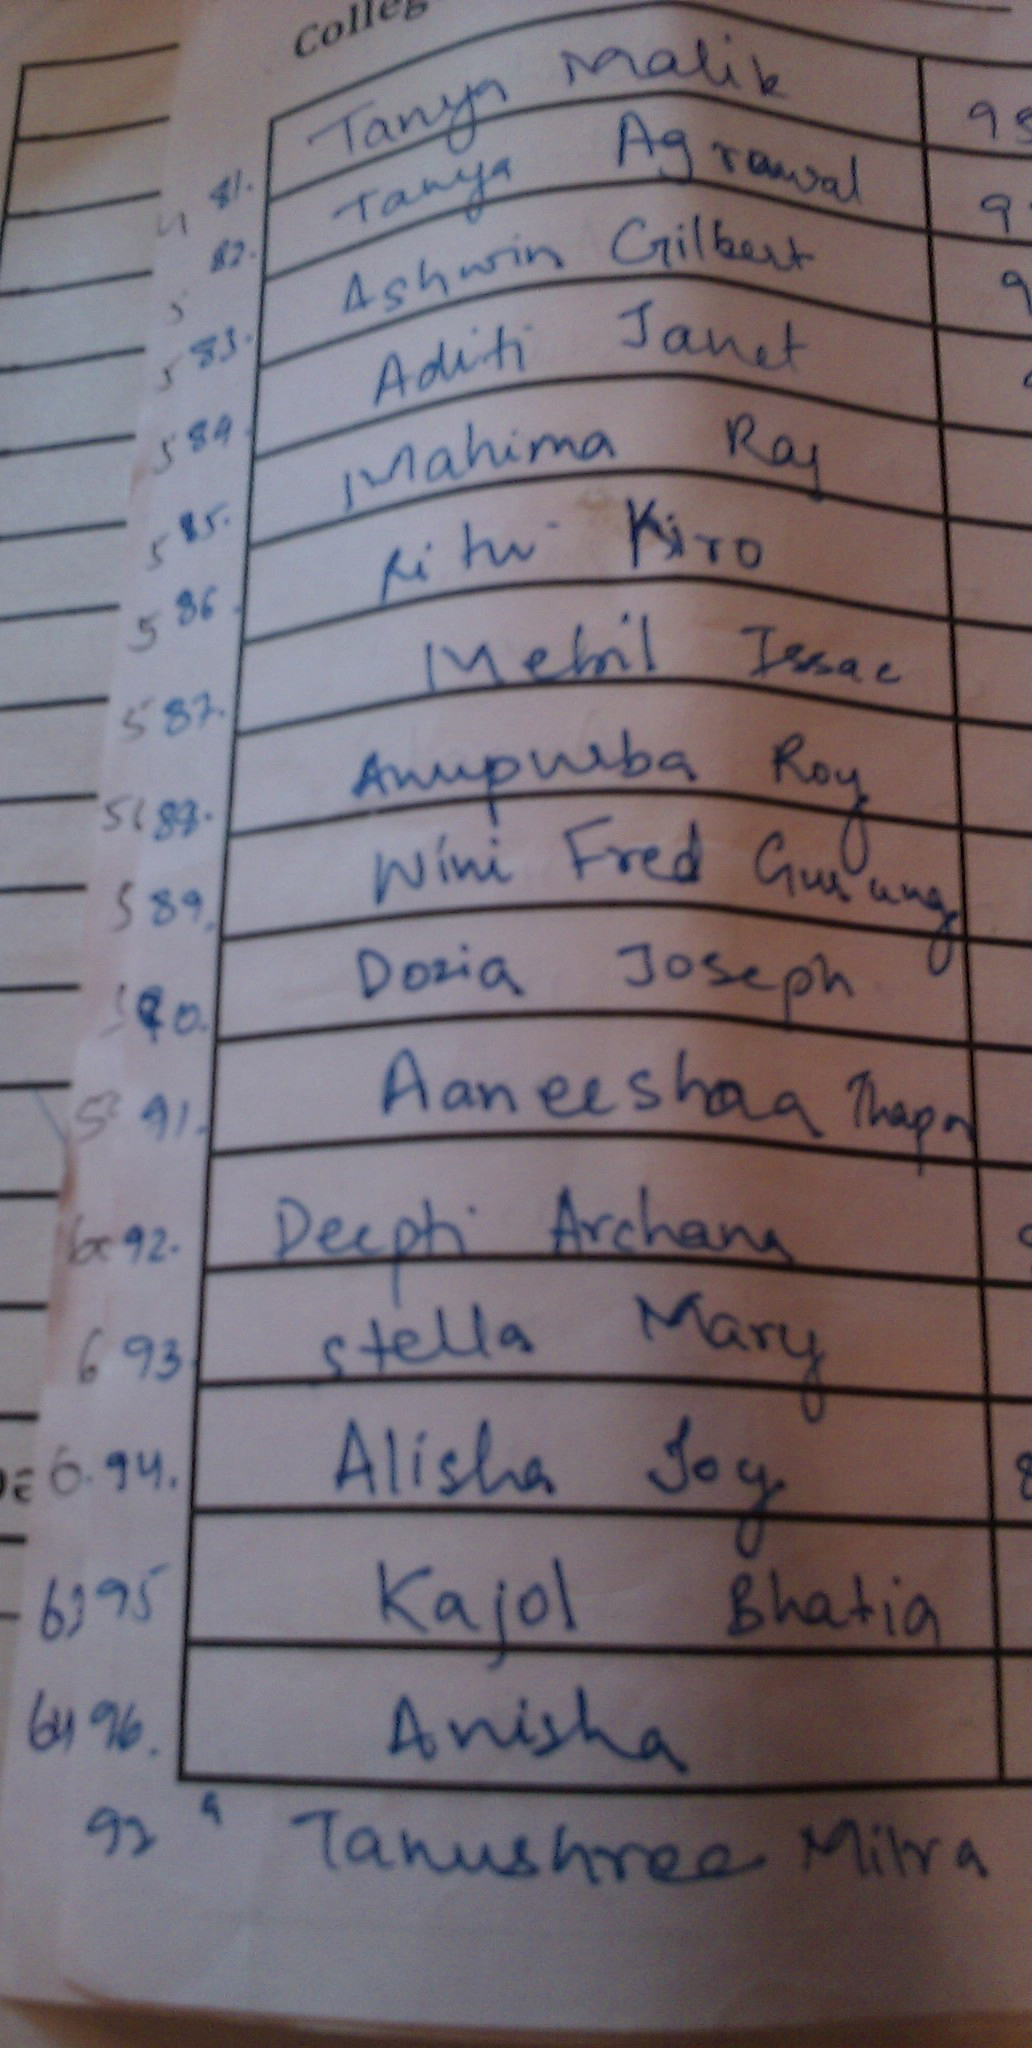 Colleg
81. Tanya Malik 95
82. Tanya Agrawal 9
83. Ashwin Gilbert 9
84. Aditi Janet
85. Mahima Raj
86. Ritu Kiro
87. Issac
88. Anupurba Roy
89. Wini Fred Gurung
90. Dozia Joseph
91. Aaneeshaa Thapa
92. Deepti Archana
93 Stella Mary
94. Alisha Joy 8
95 Kajol Bhatia
96. Anisha
Tanushree Mitra